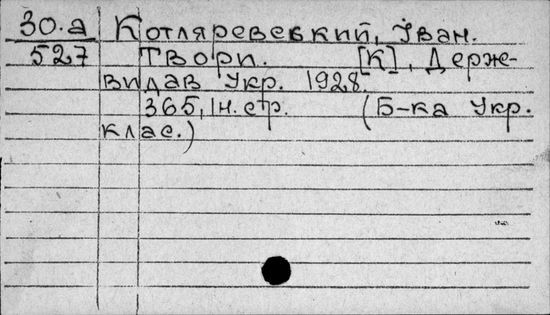 30.а Котляревський, Іван.
527 Твори. [К], Держ-
видав Укр. 1928.
365, 1н. стр. (Б-ка Укр.
клас.)